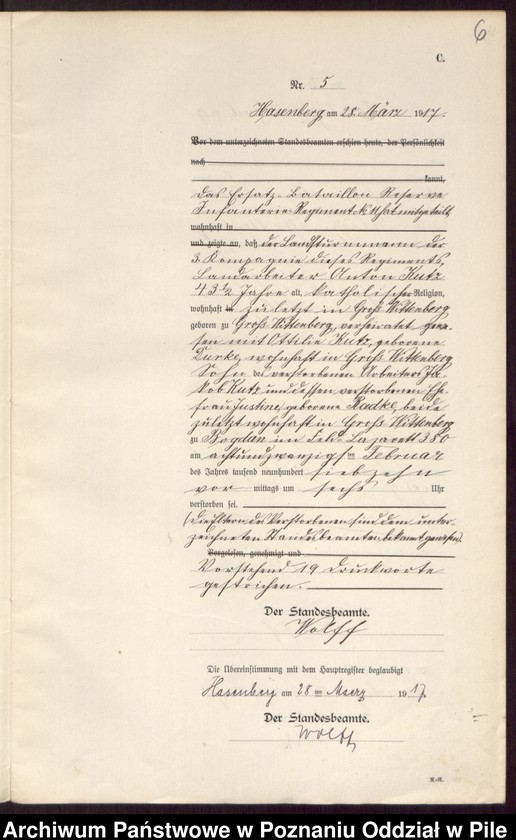 6
C.
Nr. 5
Hasenberg, am 28. März 1917.
Vor dem unterzeichneten Standesbeamten erschien heute, der Persönlichkeit
nach
kannt,
Das Ersatz-Bataillon Reserve
Infanterie-Regiment № 11 hat mitgeteilt,
wohnhaft in
und zeigte an, daß der Landsturmmann der
3. Kompagnie dieses Regiments,
Landarbeiter Anton Kutz
43½ Jahre alt, katholischer Religion,
wohnhaft in zuletzt in Groß Wittenberg,
geboren zu Groß Wittenberg, verheiratet gewe-
sen mit Ottilie Kutz, geborene
wohnhaft in Groß Wittenberg,
Sohn des verstorbenen Arbeiters Ja-
kob Kutz und dessen verstorbenen Ehe-
frau Justine, geborene Radke, beide
zuletzt wohnhaft in Groß Wittenberg
zu Bogdan im Feld-Lazarett 380
am achtundzwanzigsten Februar
des Jahres tausend neunhundert siebzehn
vor mittags um sechs Uhr
verstorben sei.
(Die Eltern des Verstorbenen sind dem unter-
zeichneten Standesbeamten bekannt gewesen).
Vorgelesen, genehmigt und
Vorstehend 19 Druckworte
gestrichen.
Der Standesbeamte.
Wolff
Die Übereinstimmung mit dem Hauptregister beglaubigt
Hasenberg am 28 ten Maerz 1917.
Der Standesbeamte.
Wolff
Archiwum Państwowe w Poznaniu Oddział w Pile